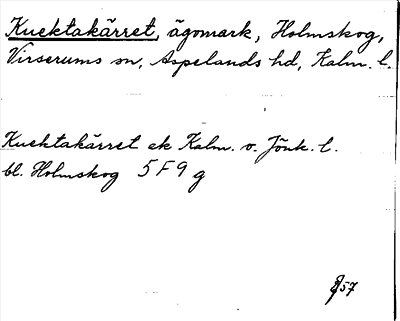 Knektakärret, ägomark, Holmskog,
Virserums sn, Aspelands hd, Kalm. l.
Knektakärret ek Kalm. v. Jönk. l.
bl. Holmskog 5F9g
57